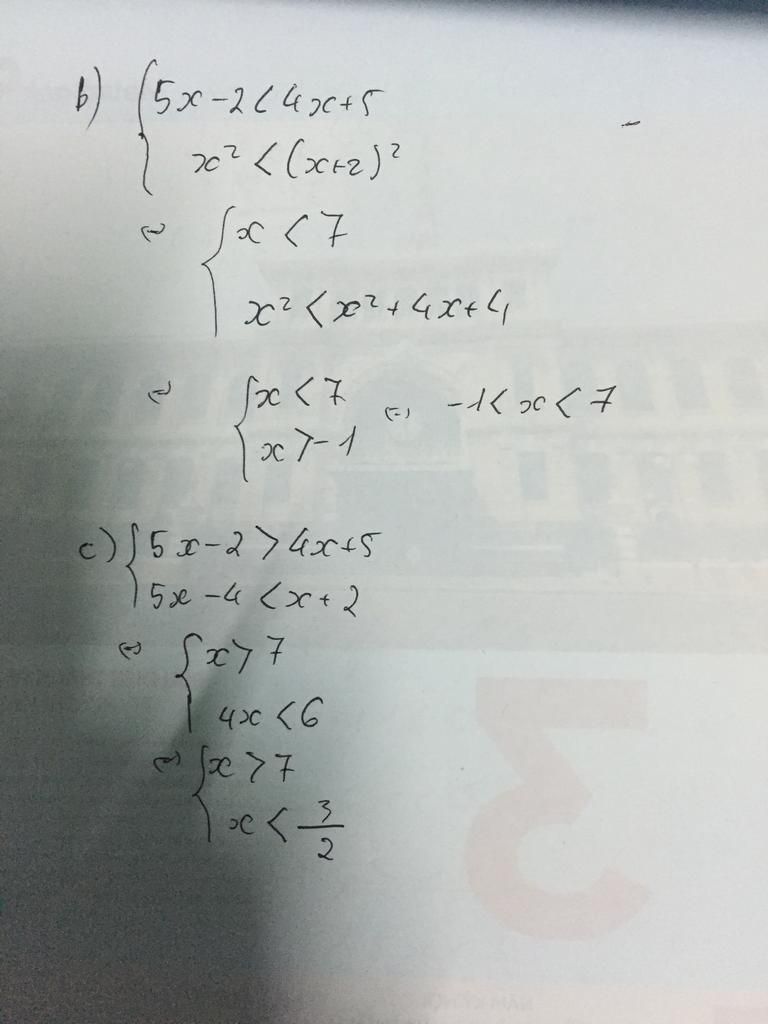 b) { 5x - 2 < 4x + 5
x² < (x+2)²
⇔ { x < 7
x² < x² + 4x + 4
⇔ { x < 7 ⇔ -1 < x < 7
x > -1
c) { 5x - 2 > 4x + 5
5x - 4 < x + 2
⇔ { x > 7
4x < 6
⇔ { x > 7
x < 3/2
3